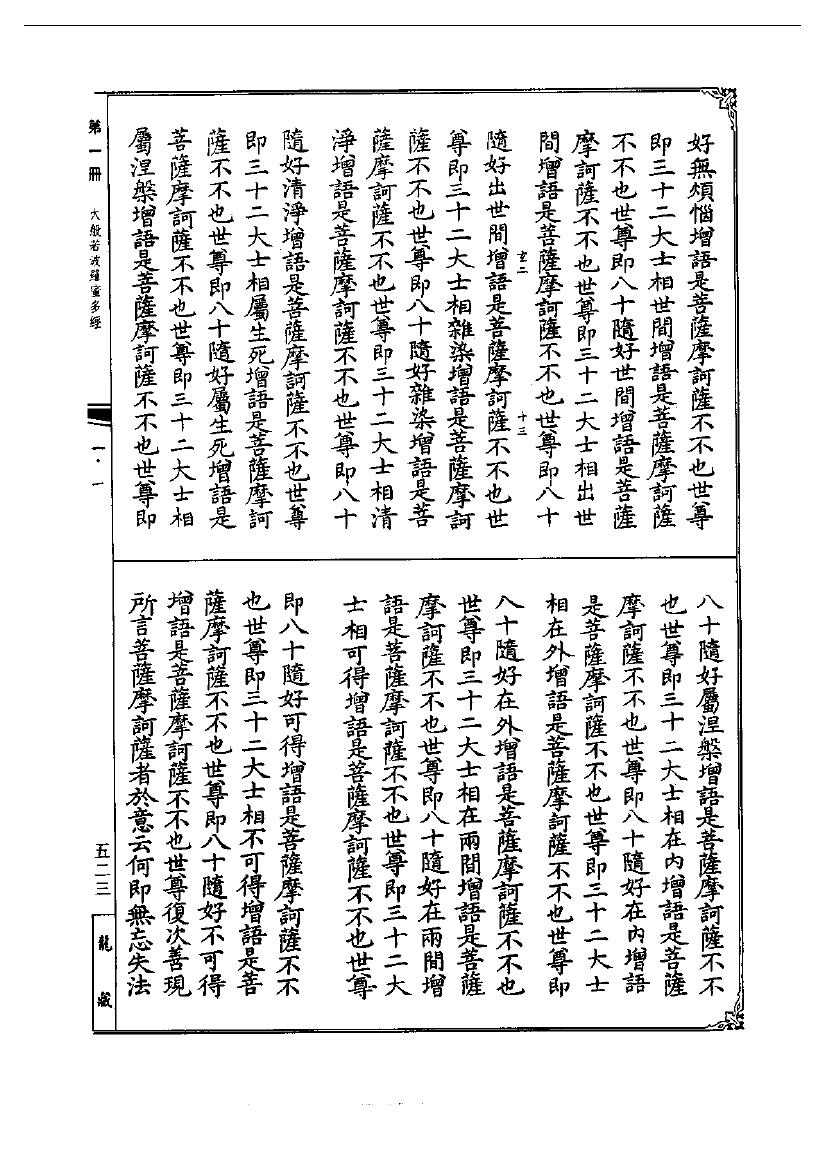 好無煩惱增語是菩薩摩訶薩不不也世尊
即三十二大士相世間增語是菩薩摩訶薩
不不也世尊即八十隨好世間增語是菩薩
摩訶薩不不也世尊即三十二大士相出世
間增語是菩薩摩訶薩不不也世尊即八十
玄二
十三
隨好出世間增語是菩薩摩訶薩不不也世
尊即三十二大士相雜染增語是菩薩摩訶
薩不不也世尊即八十隨好雜染增語是菩
薩摩訶薩不不也世尊即三十二大士相清
淨增語是菩薩摩訶薩不不也世尊即八十
隨好清淨增語是菩薩摩訶薩不不也世尊
即三十二大士相屬生死增語是菩薩摩訶
薩不不也世尊即八十隨好屬生死增語是
菩薩摩訶薩不不也世尊即三十二大士相
屬涅槃增語是菩薩摩訶薩不不也世尊即
八十隨好屬涅槃增語是菩薩摩訶薩不不
也世尊即三十二大士相在內增語是菩薩
摩訶薩不不也世尊即八十隨好在內增語
是菩薩摩訶薩不不也世尊即三十二大士
相在外增語是菩薩摩訶薩不不也世尊即
八十隨好在外增語是菩薩摩訶薩不不也
世尊即三十二大士相在兩間增語是菩薩
摩訶薩不不也世尊即八十隨好在兩間增
語是菩薩摩訶薩不不也世尊即三十二大
士相可得增語是菩薩摩訶薩不不也世尊
即八十隨好可得增語是菩薩摩訶薩不不
也世尊即三十二大士相不可得增語是菩
薩摩訶薩不不也世尊即八十隨好不可得
增語是菩薩摩訶薩不不也世尊復次善現
所言菩薩摩訶薩者於意云何即無忘失法
第一冊
大般若波羅蜜多經
一·一
五二三
龍藏